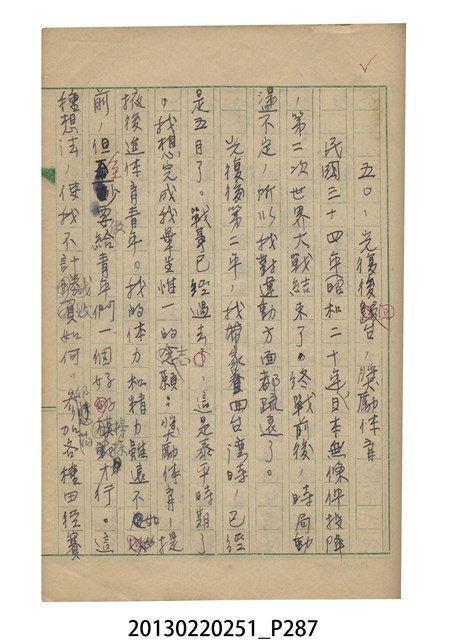 五〇、光復後回台，獎勵体育
民國三十四年昭和二十年日本無條件投降
，第二次世界大戰結束了。終戰前後，時局動
盪不定，所以我對運動方面都疏遠了。
光復後第二年，我帶家眷回台灣時，已經
是五月了。戰爭已經過去，這是泰平時期了
。我想完成我畢生惟一的志願：獎勵体育，提
掖後進体育青年。我的体力和精力雖遠不如
前，但至少要給青年們一個好好榜樣才行。這
種想法，使我不計勝負如何，參加各種田徑賽
20130220251_P287